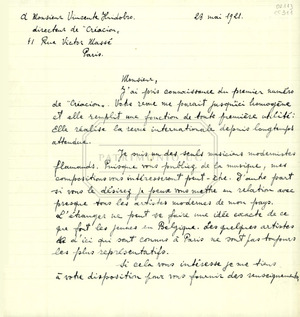 à Monsieur Vincente Huidobro. 23 mai 1921.
directeur de "Creacion",
41 Rue Victor Massé
Paris.
Monsieur,
J'ai pris connaissance du premier numéro
de "Creacion". Votre revue me parait jusqu'ici homogène
et elle remplit une fonction de toute première utilité:
Elle réalise la revue internationale depuis longtemps
attendue.
Je suis un des seuls musiciens modernistes
flamands. Puisque vous publiez de la musique, mes
compositions vous intéresseront peut-être. D'autre part
si vous le désirez je peux vous mettre en relation avec
presque tous les artistes modernes de mon pays.
L'étranger ne peut se faire une idée exacte de ce
que font les jeunes en Belgique. Les quelques artistes
d'ici qui sont connus à Paris ne sont pas toujours
les plus représentatifs.
Si cela vous intéresse je me tiens
à votre disposition pour vous fournir des renseignements